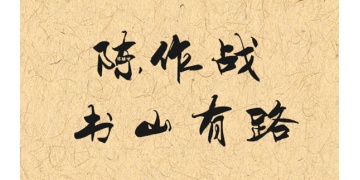 陈作战
书山有路